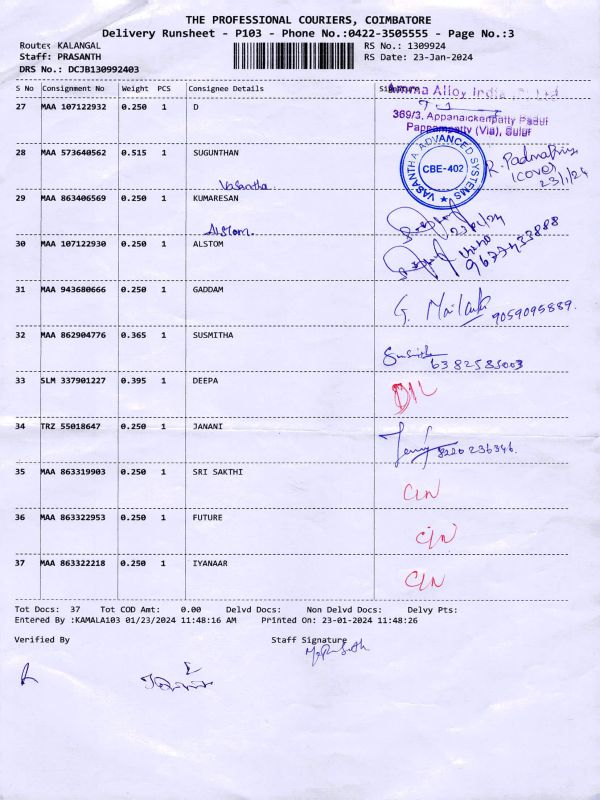 THE PROFESSIONAL COURIERS, COIMBATORE
Delivery Runsheet - P103 - Phone No.:0422-3505555 - Page No.:3
Route: KALANGAL RS No.: 1309924
Staff: PRASANTH RS Date: 23-Jan-2024
DRS No.: DCJB130992403
S No Consignment No Weight PCS Consignee Details
Amma Alloy India P Ltd
27 MAA 107122932 0.250 1 D
369/3, Appanaickenpatty Pudur
Pappampatty (Via), Sulur
28 MAA 573640562 0.515 1 SUGUNTHAN
VASANTHA ADVANCED SYSTEMS ★ CBE-402
R. Padmapriya
(cover)
23/1/24
Vasantha
29 MAA 863406569 0.250 1 KUMARESAN
23/1/24
Alstom.
30 MAA 107122930 0.250 1 ALSTOM
9677433888
31 MAA 943680666 0.250 1 GADDAM
9059095889.
32 MAA 862904776 0.365 1 SUSMITHA
6382585003
33 SLM 337901227 0.395 1 DEEPA
D/L
34 TRZ 55018647 0.250 1 JANANI
8220236346.
35 MAA 863319903 0.250 1 SRI SAKTHI
C/N
36 MAA 863322953 0.250 1 FUTURE
C/N
37 MAA 863322218 0.250 1 IYANAAR
C/N
Tot Docs: 37 Tot COD Amt: 0.00 Delvd Docs: Non Delvd Docs: Delvy Pts:
Entered By :KAMALA103 01/23/2024 11:48:16 AM Printed On: 23-01-2024 11:48:26
Verified By Staff Signature